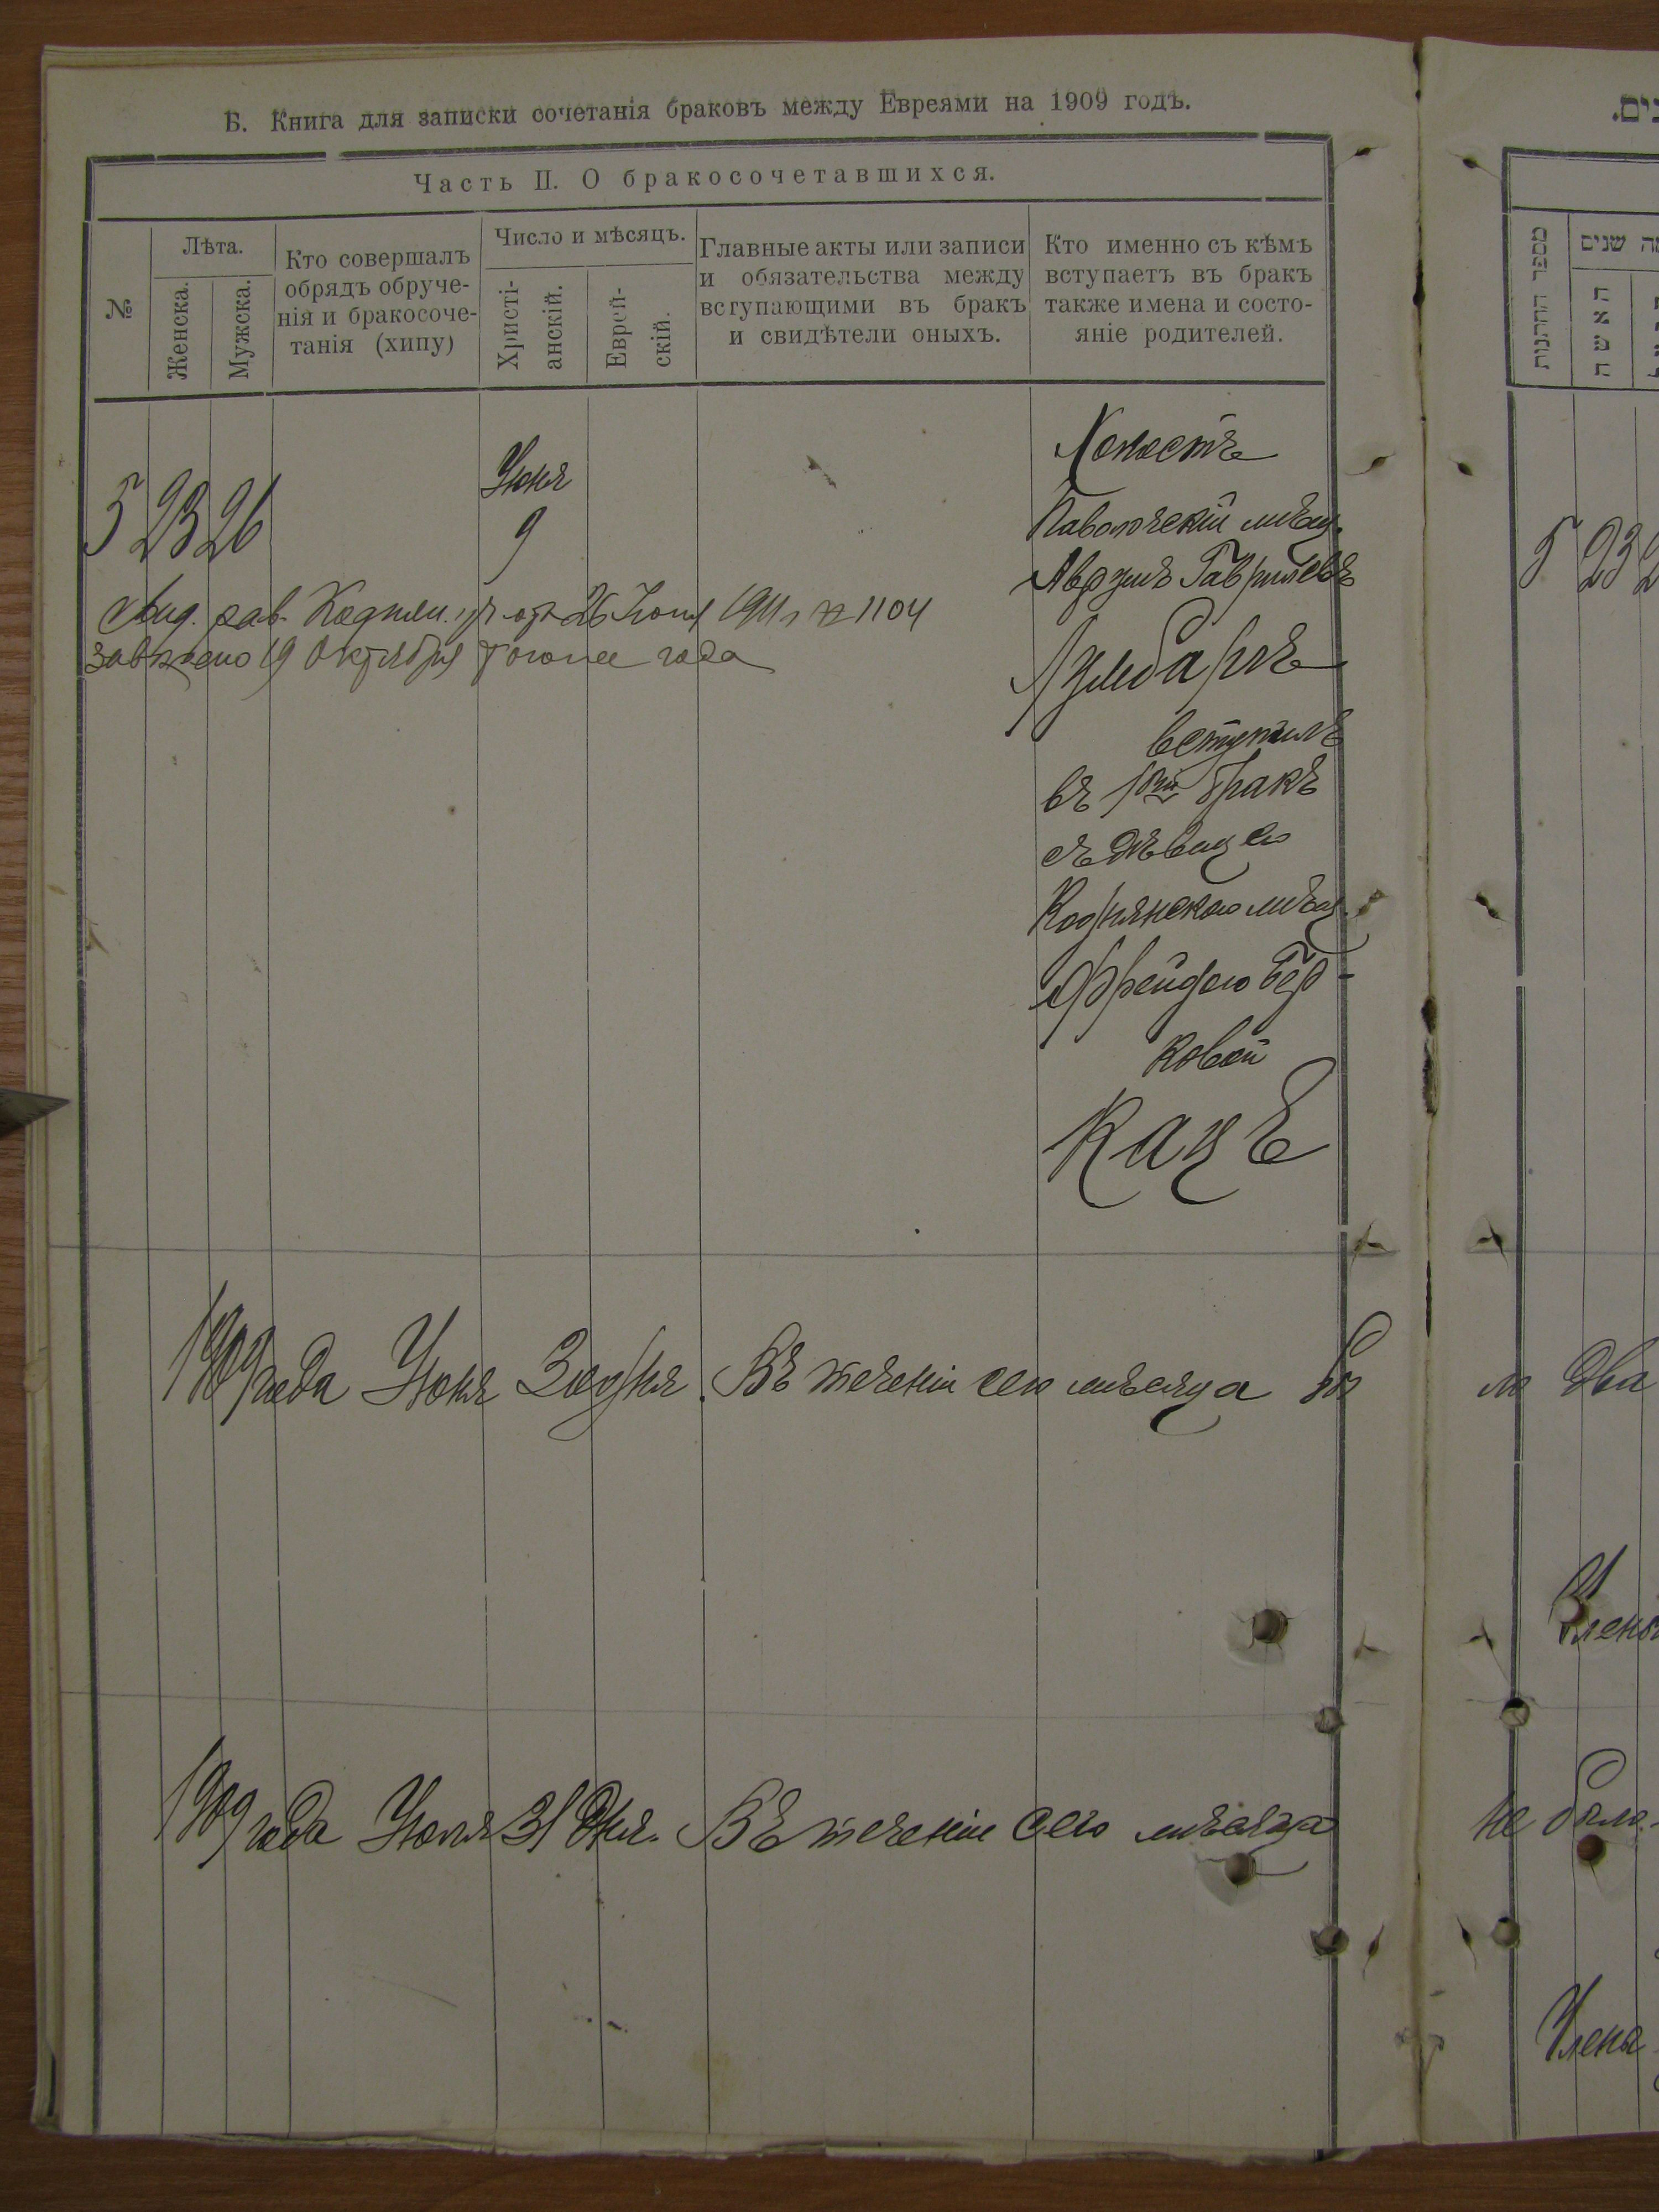 Б. Книга для записки сочетанія браковъ между Евреями на 1909 годъ.
Часть II. О бракосочетавшихся.
№
Лѣта.
Женска.
Мужска.
Кто совершалъ
обрядъ обруче-
нія и бракосоче-
танія (хипу)
Число и мѣсяцъ.
Христі-
анскій.
Еврей-
скій.
Главные акты или записи
и обязательства между
вступающими въ бракъ
и свидѣтели оныхъ.
Кто именно съ кѣмъ
вступаетъ въ бракъ
также имена и состо-
яніе родителей.
5 23 26
Іюня
9
Холостъ
Паволочскій мѣщ.
Аврумъ Гавриловъ
вступилъ
въ 1ый бракъ
съ дѣвицею
Коднянскою мѣщ.
Фрейдою Бер-
ковой
Кацъ
рав. 26 Іюня 1911 г № 1104
19 Октября того же года
1909 года Іюня 30 дня. Въ теченіи сего мѣсяца бы
1909 года Іюля 31 дня. Въ теченіи сего мѣсяца
מספר החתונות
שנים
האשה
5 23 2
ло два
не было.
Члены